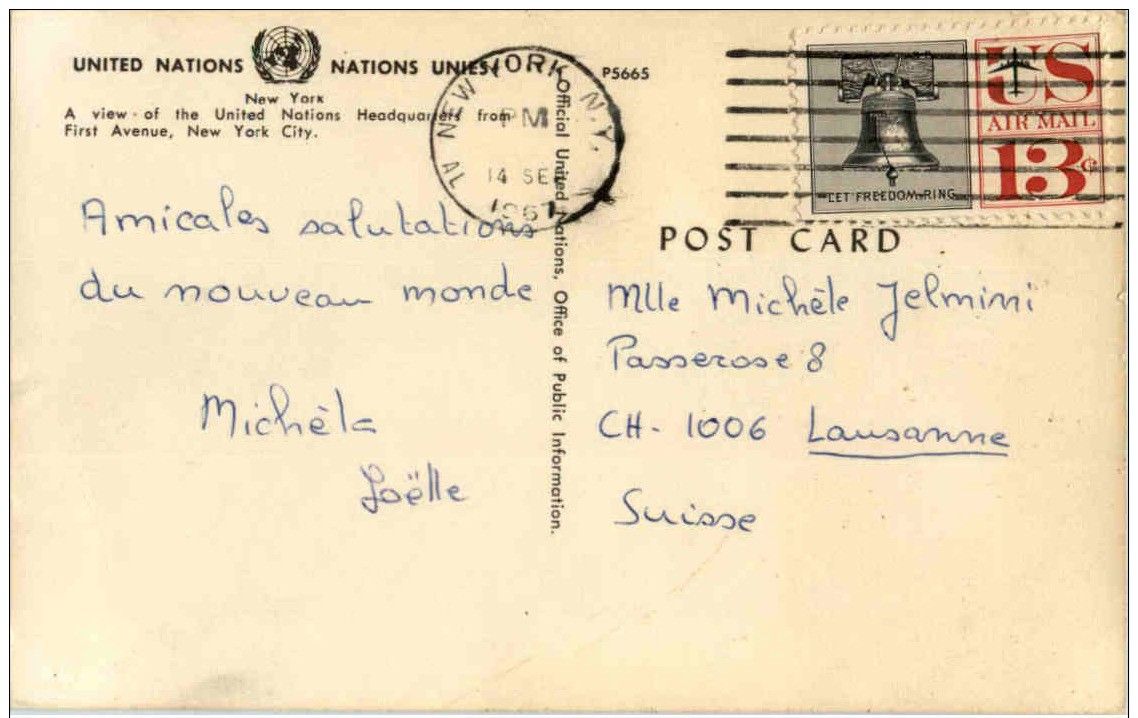 UNITED NATIONS NATIONS UNIES
New York
A view of the United Nations Headquarters from
First Avenue, New York City.
P5665
NEW YORK, N.Y.
PM
14 SEP
1967
US
AIR MAIL
13c
LET FREEDOM RING
Official United Nations, Office of Public Information.
POST CARD
Amicales salutations
du nouveau monde
Michèle
Joëlle
Mlle Michèle Jelmini
Passerose 8
CH-1006 Lausanne
Suisse